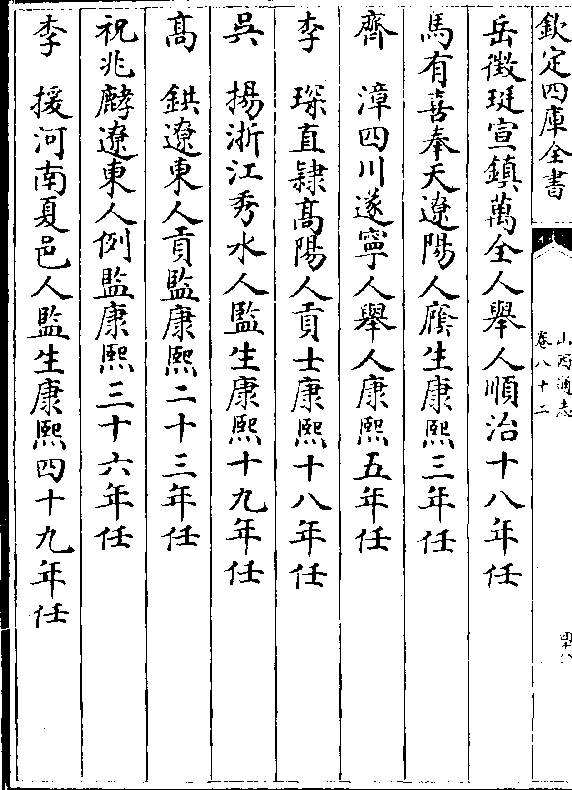 欽定四庫全書
山西通志
卷八十二
四十八
岳徵珽宣鎮萬全人舉人順治十八年任
馬有喜奉天遼陽人廕生康熙三年任
齊　漳四川遂寧人舉人康熙五年任
李　琛直隸高陽人貢士康熙十八年任
吳　揚浙江秀水人監生康熙十九年任
高　鉷遼東人貢監康熙二十三年任
祝兆麟遼東人例監康熙三十六年任
李　援河南夏邑人監生康熙四十九年任